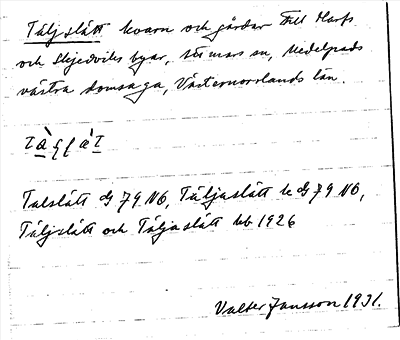 Täljslätt kvarn och gårdar till Marfs
och Skjedviks byar, Njurmars sn, Medelpads
västra domsaga, Västernorrlands län.
Talslätt G 79 NÖ, Täljaslätt k G 79 NÖ,
Täljslätt och Täljaslätt bb 1926
Valter Jansson 1931.